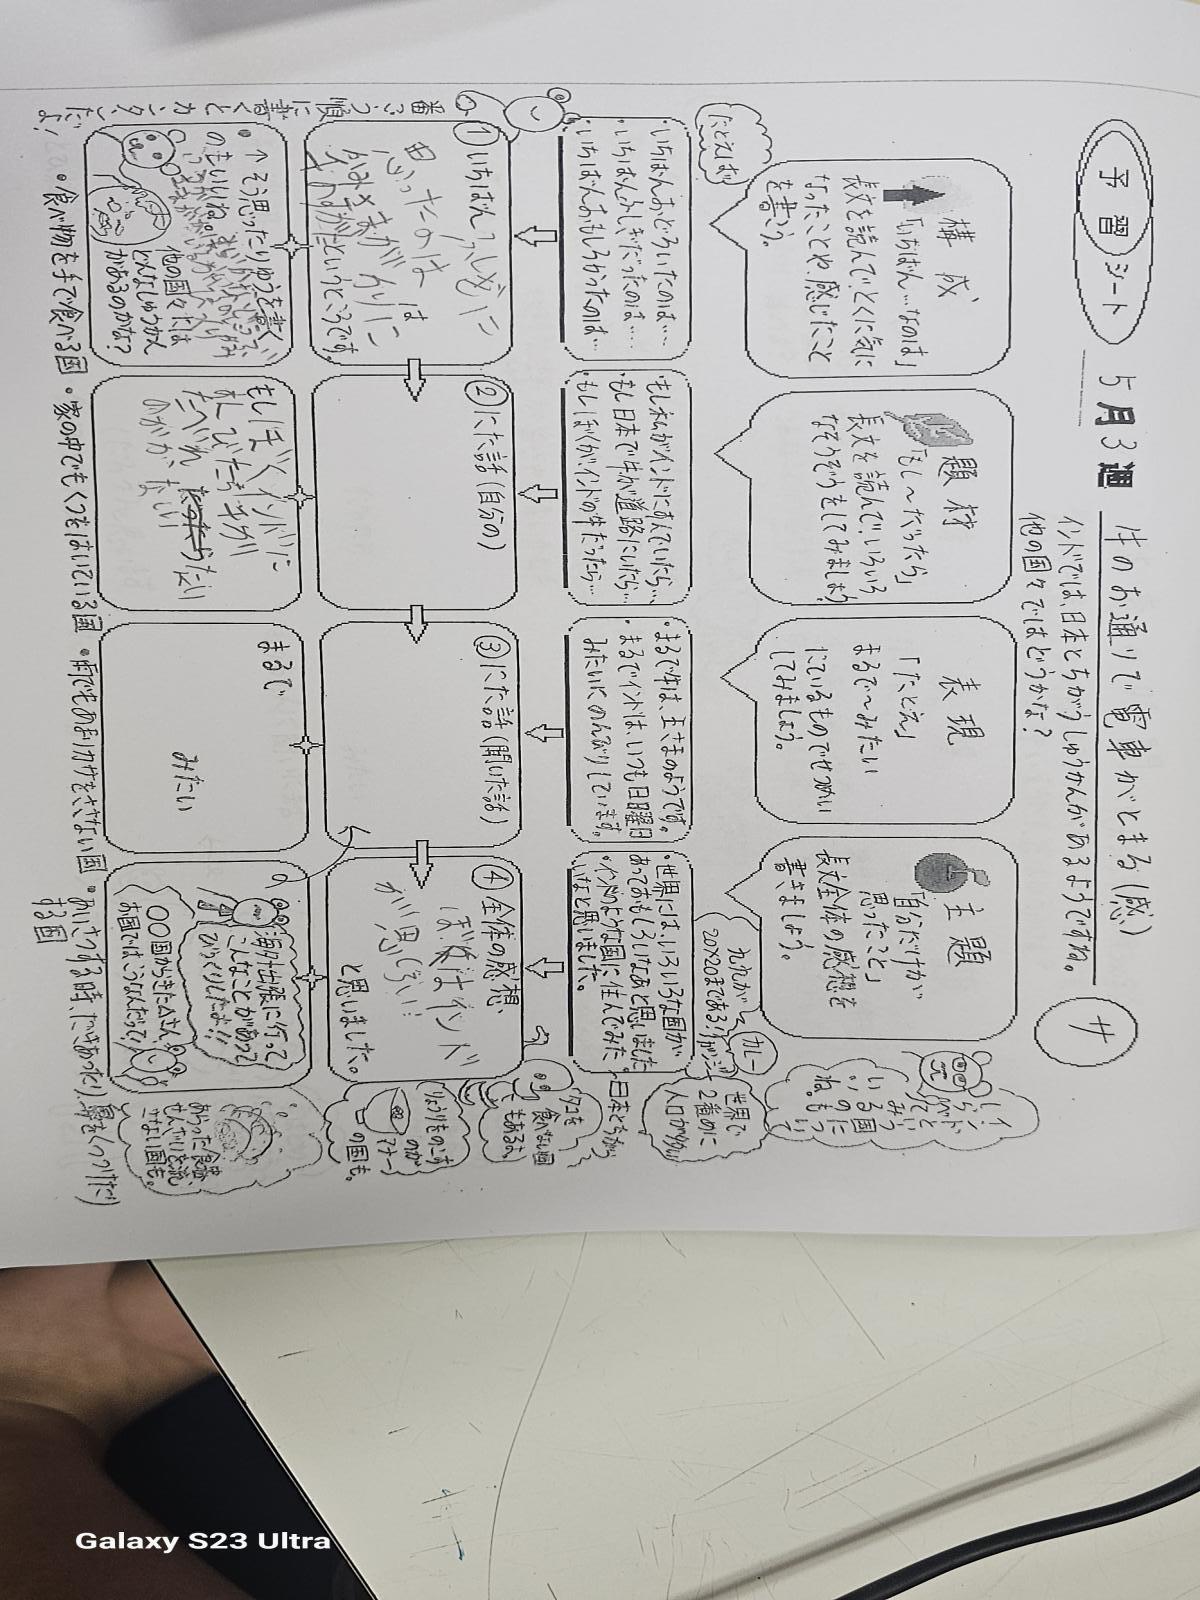 予習シート
5月3週
牛のお通りで電車がとまる(感)
インドでは、日本とちがうしゅうかんがあるようですね。
他の国々ではどうかな?
サ
構成
「いちばん…なのは」
長文を読んで、とくに気に
なったことや、感じたこと
を書こう。
題材
「もし〜だったら」
長文を読んで、いろいろ
なそうぞうをしてみましょう。
表現
「たとえ」
まるで〜みたい
にているものでせつめい
してみましょう。
主題
「自分だけが
思ったこと」
長文全体の感想を
書きましょう。
たとえば
・いちばんおどろいたのは…
・いちばんふしぎだったのは…
・いちばんおもしろかったのは…
・もし私がインドにすんでいたら…
・もし日本で牛が道路にいたら…
・もしぼくが、インドの牛だったら…
・まるで牛は、王さまのようです。
・まるでインドは、いつも日曜日
みたいにのんびりしています。
・世界には、いろいろな国が
あっておもしろいなあと思いました。
・インドのような国に住んでみた
いなと思いました。
番ごう順に書くとカンタンだよ!
①いちばんふしぎに
思ったのは
というところです。
②にた話(自分の)
③にた話(聞いた話)
④全体の感想、
ぼくはインド
と思いました。
・↑そう思ったりゆうを書く
のもいいね。
他の国々では
どんなしゅうかん
があるのかな?
もしぼくインドに
まるで
みたい
海外出張に行って
こんなことがあって
びっくりしたよ!!
〇〇国からきたムさん
お国ではこうなんだって!
九九が
20×20まである!
カレー
世界で
2番めに
人口が多い
日本とちがう
タコを
食べない国
もあるよ。
りょうりをのこす
のが
マナー
の国も。
・食べ物を手で食べる国
・家の中でもくつをはいている国
・雨でもあまりカサをささない国
・あいさつする時、だきあったり、鼻をくっつけたり
する国
Galaxy S23 Ultra